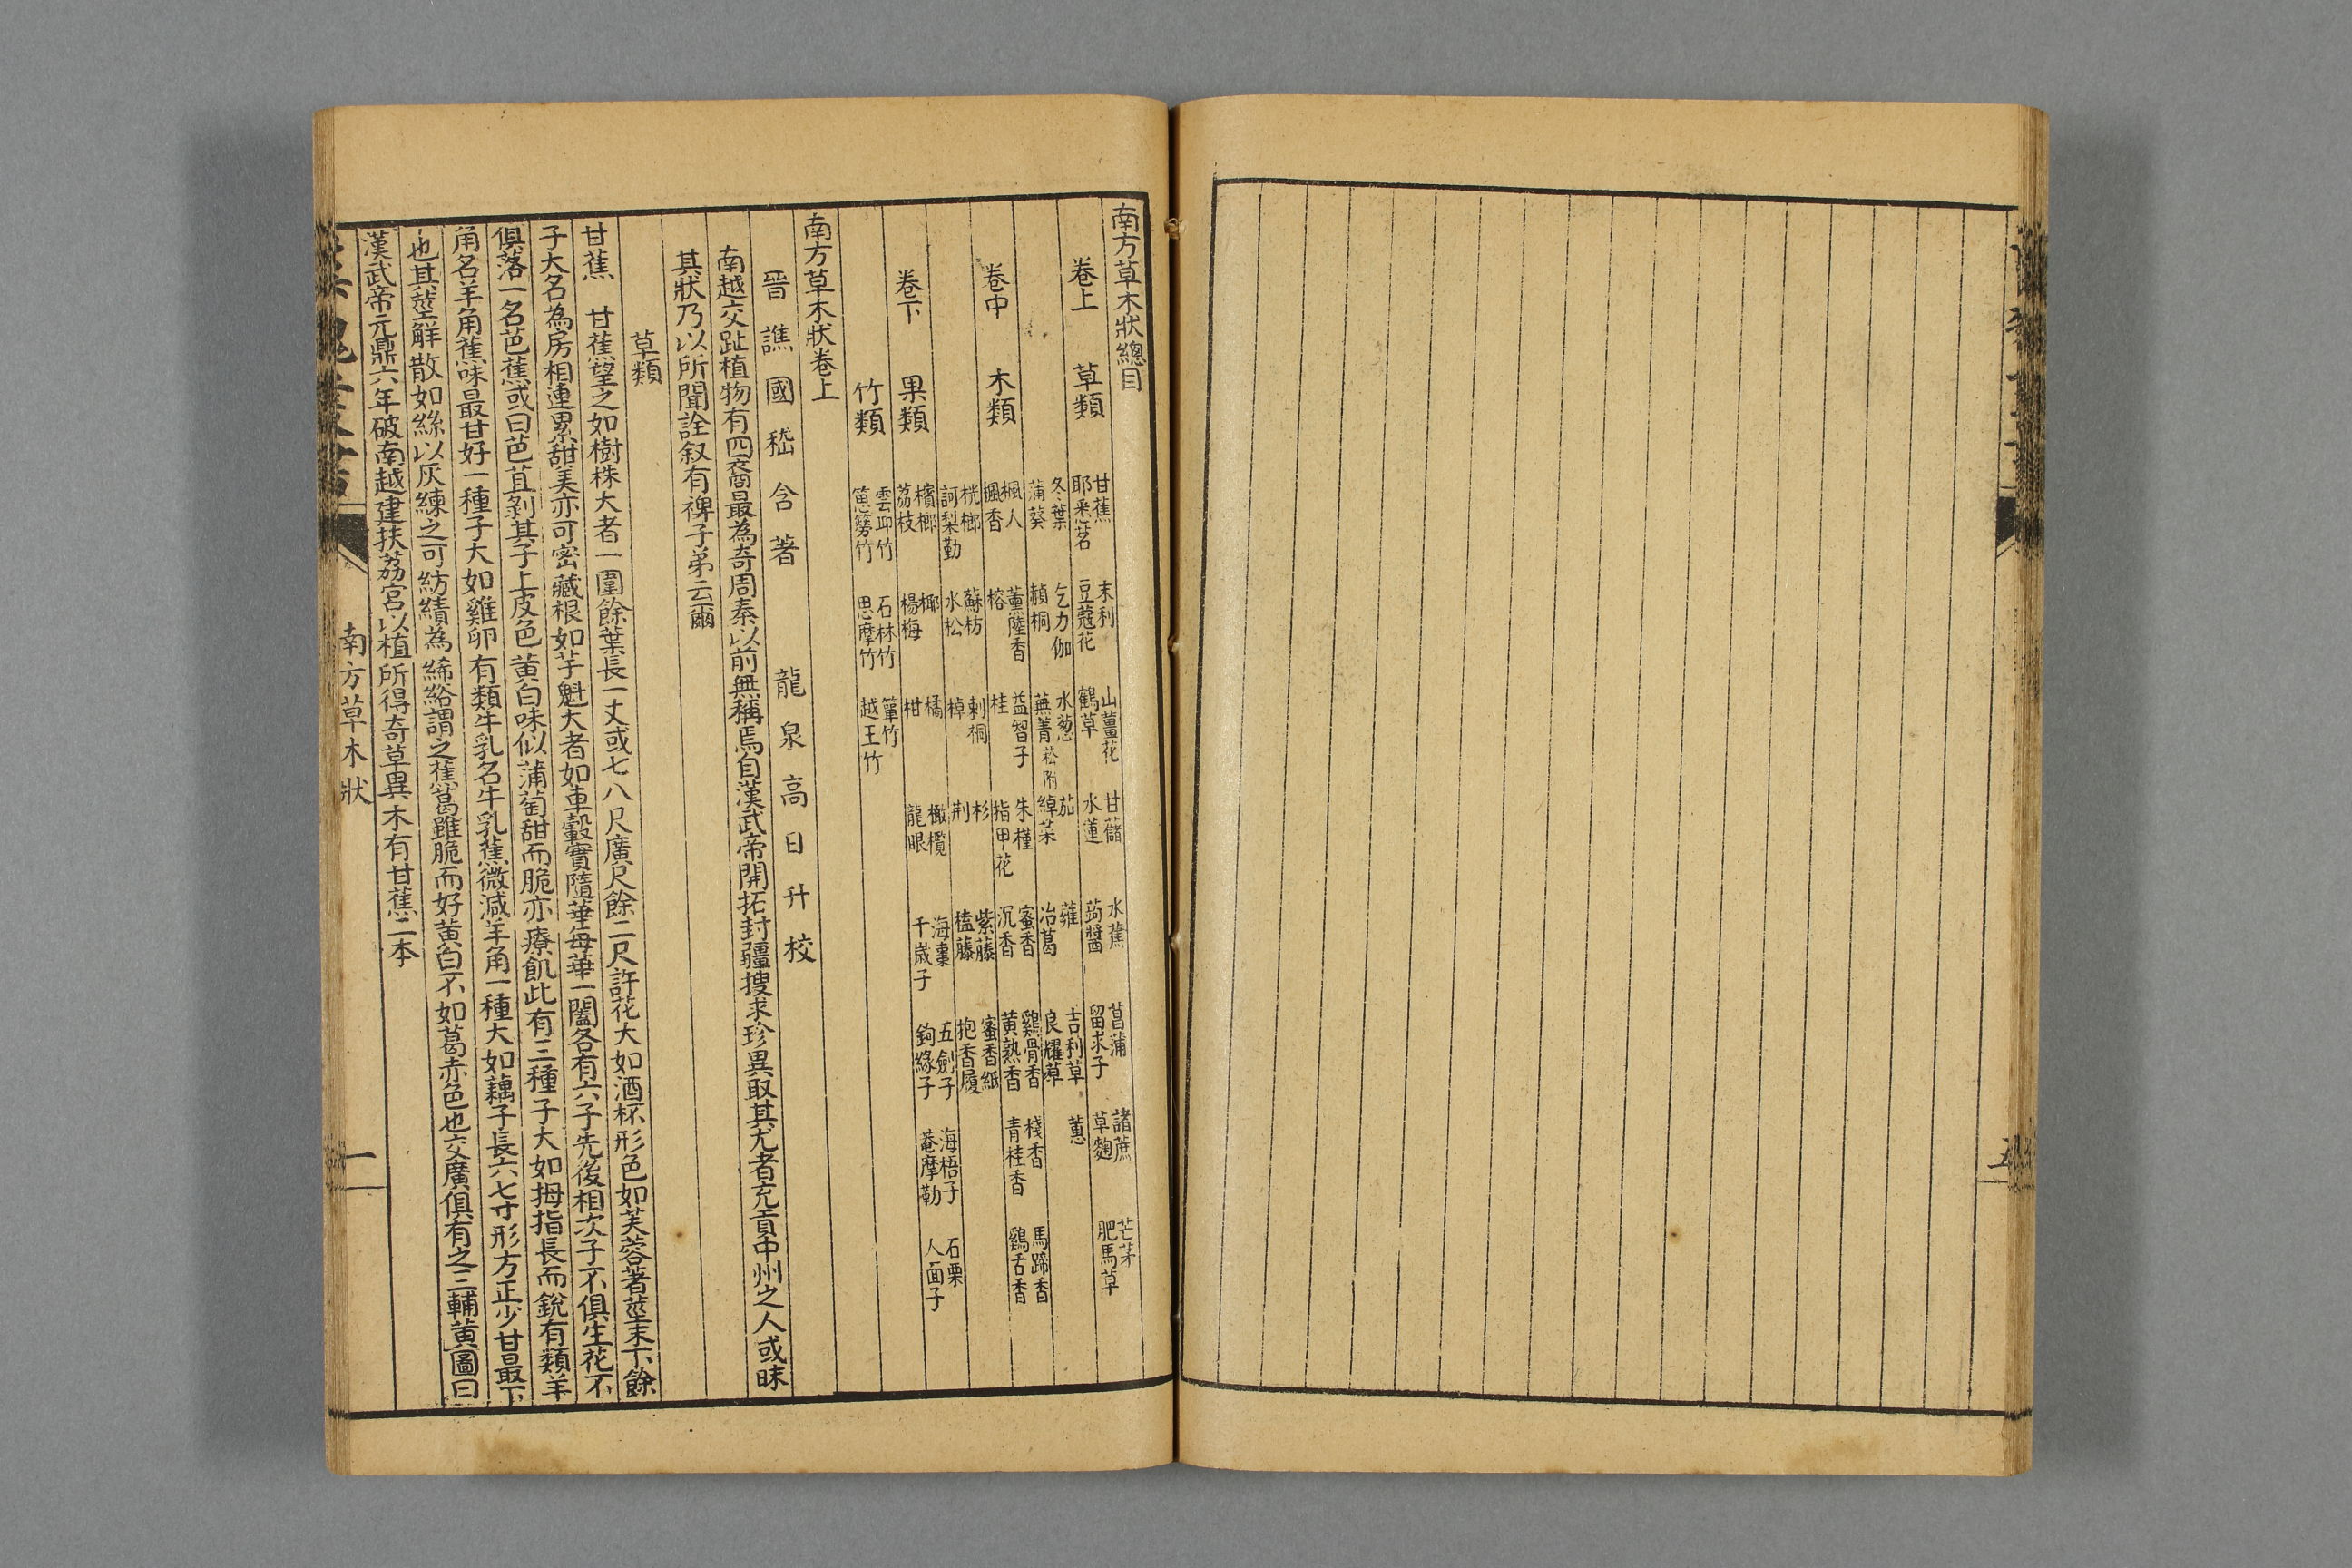 南方草木狀總目
卷上　草類　甘蕉　末利　山薑花　甘藷　水蕉　菖蒲　諸蔗　芒茅
耶悉茗　豆蔻花　鶴草　水蓮　蒟醬　留求子　草麴　肥馬草
冬葉　乞力伽　水葱　茄　蕹　吉利草　蕙
蒲葵　赬桐　蕪菁菘附　綽菜　冶葛　良耀草
卷中　木類　楓人　薰陸香　益智子　朱槿　蜜香　鷄骨香　棧香　馬蹄香
楓香　榕　桂　指甲花　沉香　黄熟香　青桂香　鷄舌香
桄榔　蘇枋　刺桐　杉　紫藤　蜜香紙
訶梨勒　水松　棹　荆　榼藤　抱香履
卷下　果類　檳榔　椰　橘　橄欖　海棗　五劍子　海梧子　石栗
荔枝　楊梅　柑　龍眼　千歲子　鉤緣子　菴摩勒　人面子
竹類　雲丘竹　石林竹　簞竹
簩竹　思摩竹　越王竹
南方草木狀卷上
晉譙國嵇含著　龍泉高日升校
南越交趾植物有四裔最為奇周秦以前無稱焉自漢武帝開拓封疆搜求珍異取其尤者充貢中州之人或昧
其狀乃以所聞詮叙有裨子弟云爾
草類
甘蕉　甘蕉望之如樹株大者一圍餘葉長一丈或七八尺廣尺餘二尺許花大如酒杯形色如芙蓉著莖末下餘
子大名為房相連累甜美亦可密藏根如芋魁大者如車轂實隨華每華一闔各有六子先後相次子不俱生花不
俱落一名芭蕉或曰芭苴剝其子上皮色黄白味似蒲萄甜而脆亦療飢此有三種子大如拇指長而銳有類羊
角名羊角蕉味最甘好一種子大如雞卵有類牛乳名牛乳蕉微减羊角一種大如藕子長六七寸形方正少甘最下
也其莖解散如絲以灰練之可紡績為絺綌謂之蕉葛雖脆而好黄白不如葛赤色也交廣俱有之三輔黄圖曰
漢武帝元鼎六年破南越建扶荔宫以植所得奇草異木有甘蕉二本
南方草木狀
一
五